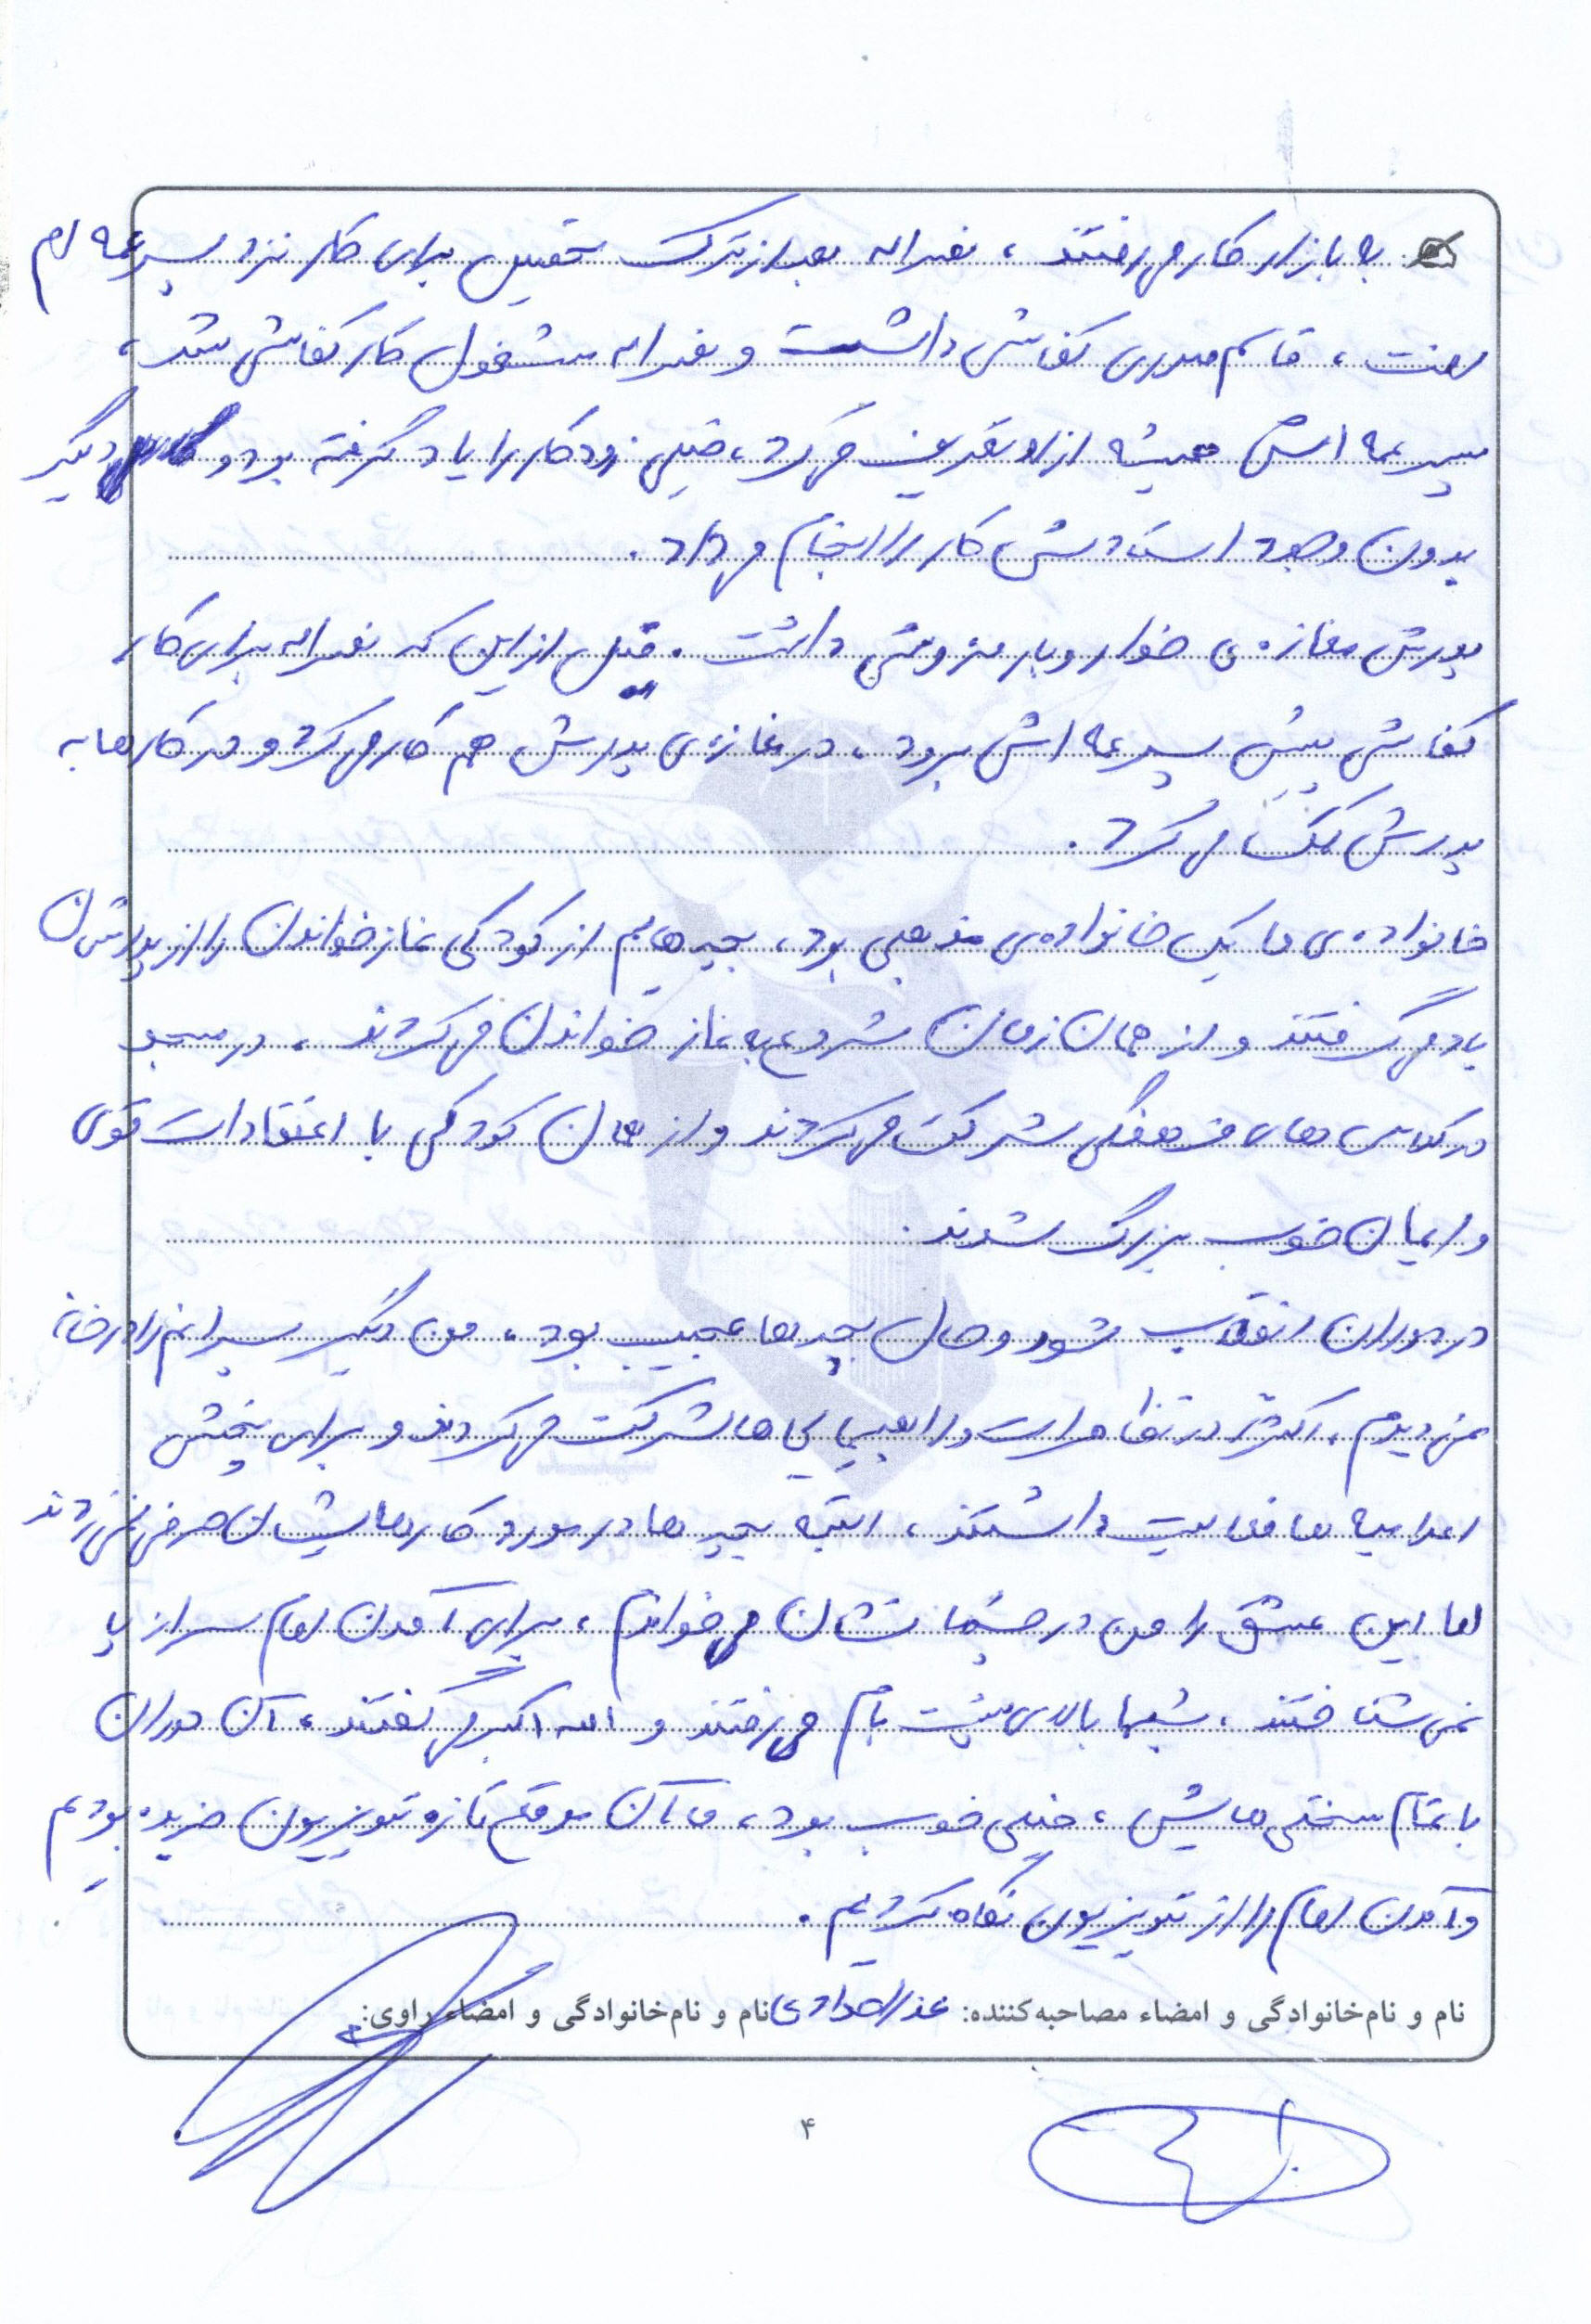 به بازار کار می‌رفتند، نصراله بعد از ترک تحصیل برای کار نزد پسر عمه ام
رفت، قاسم صدری کفاشی داشت و نصراله مشغول کار کفاشی شد،
پسر عمه اش همیشه از او تعریف می‌کرد، خیلی زود کار را یاد گرفته بود و دیگر
بدون وجود استادش کار را انجام می‌داد.
پدرش مغازه‌ی خوار و بار فروشی داشت. قبل از این که نصراله برای کار
کفاشی پیش پسر عمه اش برود، در مغازه‌ی پدرش هم کار می‌کرد و در کارها به
پدرش کمک می‌کرد.
خانواده‌ی ما یک خانواده‌ی مذهبی بود، بچه‌هایم از کودکی نماز خواندن را از پدرشان
یاد می‌گرفتند و از همان زمان شروع به نماز خواندن می‌کردند، در مسجد
در کلاس های فرهنگی شرکت می‌کردند و از همان کودکی با اعتقادات قوی
و ایمان خوب بزرگ شدند.
در دوران انقلاب شور و حال بچه‌ها عجیب بود، من دیگر پسرانم را در خانه
نمی‌دیدم، اکثراً در تظاهرات و راهپیمایی‌ها شرکت می‌کردند و برای پخش
اعلامیه ها فعالیت داشتند، البته بچه‌ها در مورد کارهایشان حرفی نمی‌زدند
اما این عشق را من در چشمانشان می‌خواندم، برای آمدن امام سر از پا
نمی‌شناختند، شبها بالای پشت بام می‌رفتند و الله اکبر می‌گفتند، آن دوران
با تمام سختی هایش، خیلی خوب بود، ما آن موقع تازه تلویزیون خریده بودیم
و آمدن امام را از تلویزیون نگاه کردیم.
نام و نام‌خانوادگی و امضاء مصاحبه‌کننده: نام و نام‌خانوادگی و امضاء راوی:
۴